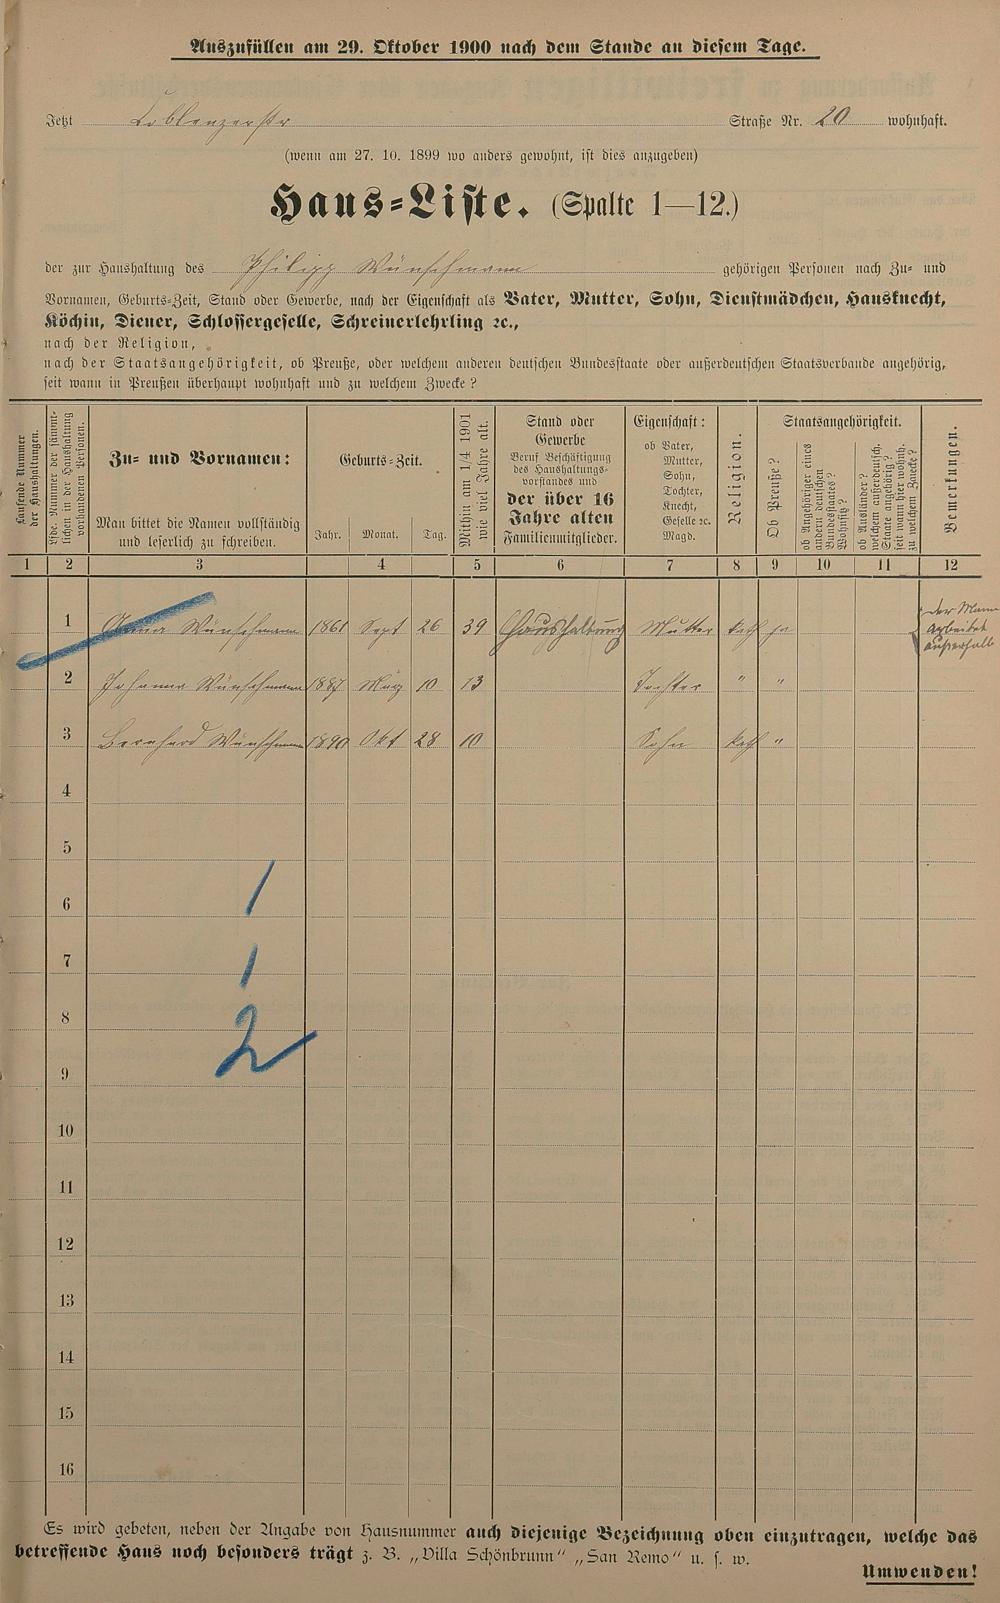 Auszufüllen am 29. Oktober 1900 nach dem Stande an diesem Tage.
Jetzt Coblenzerstr Straße Nr. 20 wohnhaft.
(wenn am 27. 10. 1899 wo anders gewohnt, ist dies anzugeben)
Haus-Liste. (Spalte 1—12.)
der zur Haushaltung des Philipp Wünschmann gehörigen Personen nach Zu- und
Vornamen, Geburts-Zeit, Stand oder Gewerbe, nach der Eigenschaft als Vater, Mutter, Sohn, Dienstmädchen, Hausknecht,
Köchin, Diener, Schlossergeselle, Schreinerlehrling ꝛc.,
nach der Religion,
nach der Staatsangehörigkeit, ob Preuße, oder welchem anderen deutschen Bundesstaate oder außerdeutschen Staatsverbande angehörig,
seit wann in Preußen überhaupt wohnhaft und zu welchem Zwecke?
Laufende Nummer
der Haushaltungen.
Lfde. Nummer der sämmt-
lichen in der Haushaltung
vorhandenen Personen.
Zu- und Vornamen:
Man bittet die Namen vollständig
und leserlich zu schreiben.
Geburts-Zeit.
Jahr. Monat. Tag.
Mithin am 1/4 1901
wie viel Jahre alt.
Stand oder
Gewerbe
Beruf Beschäftigung
des Haushaltungs-
vorstandes und
der über 16
Jahre alten
Familienmitglieder.
Eigenschaft:
ob Vater,
Mutter,
Sohn,
Tochter,
Knecht,
Geselle ꝛc.
Magd.
Religion.
Staatsangehörigkeit.
Ob Preuße?
ob Angehöriger eines
andern deutschen
Bundesstaates?
Wohnsitz?
ob Ausländer?
welchem außerdeutsch.
Staate angehörig?
seit wann hier wohnh.
zu welchem Zwecke?
Bemerkungen.
1 2 3 4 5 6 7 8 9 10 11 12
1 Anna Wünschmann 1861 Sept 26 39 Haushaltung Mutter kath ja der Mann
arbeitet
außerhalb
2 Johanna Wünschmann 1887 März 10 13 Tochter " "
3 Bernhard Wünschmann 1890 Okt 28 10 Sohn kath "
4
5
6 1
7 1
8 2
9
10
11
12
13
14
15
16
Es wird gebeten, neben der Angabe von Hausnummer auch diejenige Bezeichnung oben einzutragen, welche das
betreffende Haus noch besonders trägt z. B. „Villa Schönbrunn“ „San Remo“ u. s. w.
Umwenden!